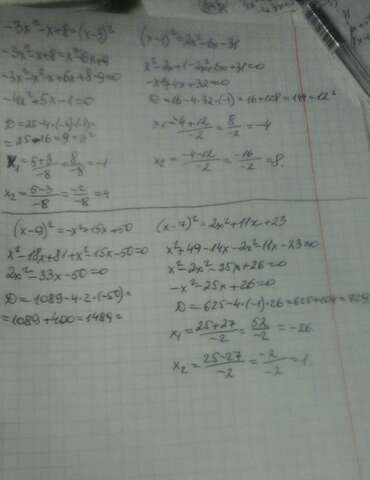 -3x²-x+8=(x-3)²
-3x²-x+8=x²-6x+9
-3x²-x²-x+6x+8-9=0
-4x²+5x-1=0
D=25-4·(-4)·(-1)=
=25-16=9=3²
x₁=5+3/-8=8/-8=-1
x₂=5-3/-8=-2/-8=
(x-1)²=2x²-6x-31
x²-2x+1-2x²+6x+31=0
-x²+4x+32=0
D=16-4·32·(-1)=16+128=144=12²
x₁=-4+12/-2=8/-2=-4
x₂=-4-12/-2=-16/-2=8.
(x-9)²=-x²+15x+50
x²-18x+81+x²-15x-50=0
2x²-33x-50=0
D=1089-4·2·(-50)=
=1089+400=1489=
(x-7)²=2x²+11x+23
x²+49-14x-2x²-11x-23=0
x²-2x²-25x+26=0
-x²-25x+26=0
D=625-4·(-1)·26=625+104=729
x₁=25+27/-2=52/-2=-26
x₂=25-27/-2=-2/-2=1.